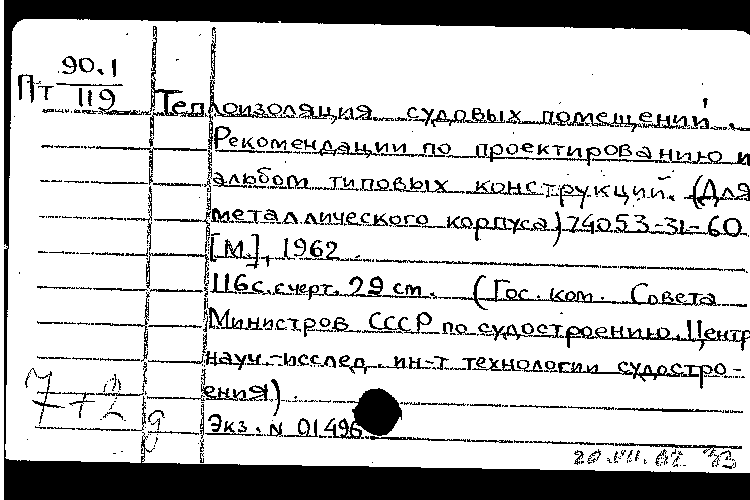 Пт 90.1
119
Теплоизоляция судовых помещений.
Рекомендации по проектированию и
альбом типовых конструкций. (Для
металлического корпуса) 74053-31-60
[М.], 1962.
116с. с черт. 29 см. (Гос. ком. Совета
Министров СССР по судостроению. Центр
науч.-исслед. ин-т технологии судостро-
ения).
7+2 д
Экз. N 01496
20.VII.62